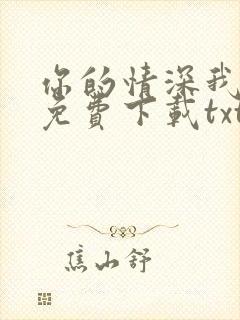 你的情深我
免費下載txt
焦山舒